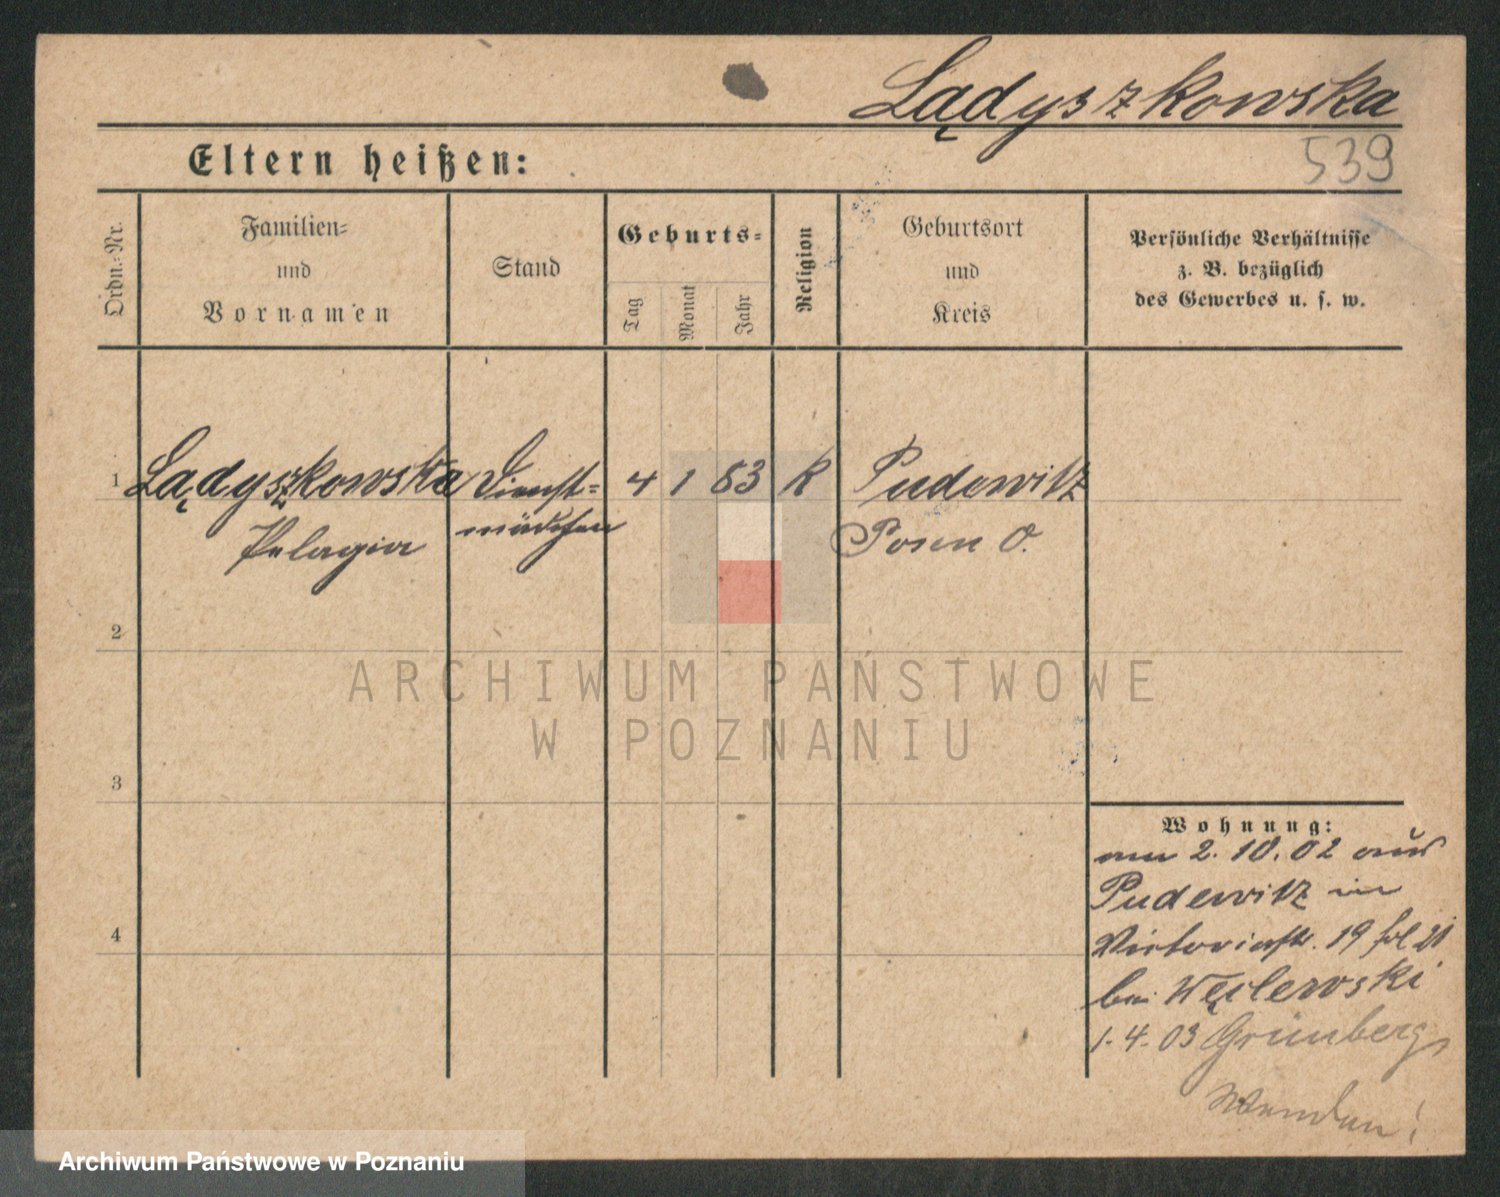 Lądyszkowska
539
Eltern heißen:
Ordn.-Nr.
Familien-
und
Vornamen
Stand
Geburts-
Tag
Monat
Jahr
Religion
Geburtsort
und
Kreis
Persönliche Verhältnisse
z. B. bezüglich
des Gewerbes u. s. w.
1 Lądyszkowska Dienst- 4 1 83 K Pudewitz
Pelagia mädchen Posen O.
2
ARCHIWUM PAŃSTWOWE
W POZNANIU
3
Wohnung:
am 2. 10. 02 aus
Pudewitz in
4
Victoriastr. 19
bei
1. 4. 03 Grünberg
Wenden!
Archiwum Państwowe w Poznaniu